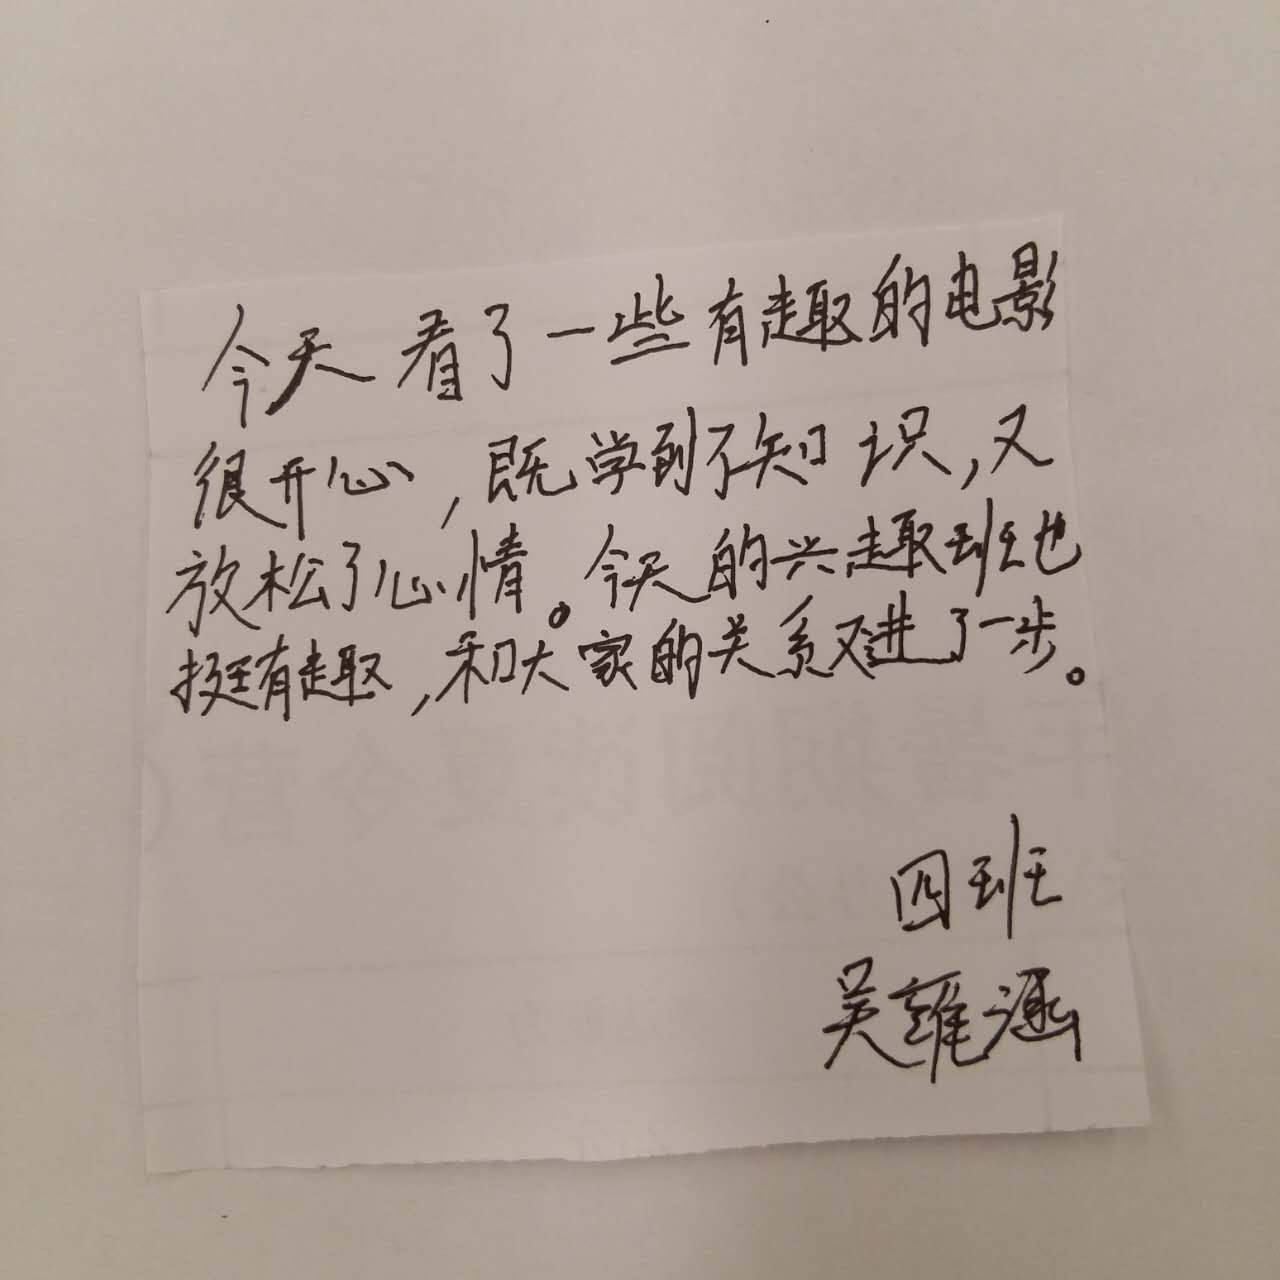 今天看了一些有趣的电影
很开心,既学到了知识,又
放松了心情。今天的兴趣班也
挺有趣,和大家的关系又进了一步。
四班
吴雄涵